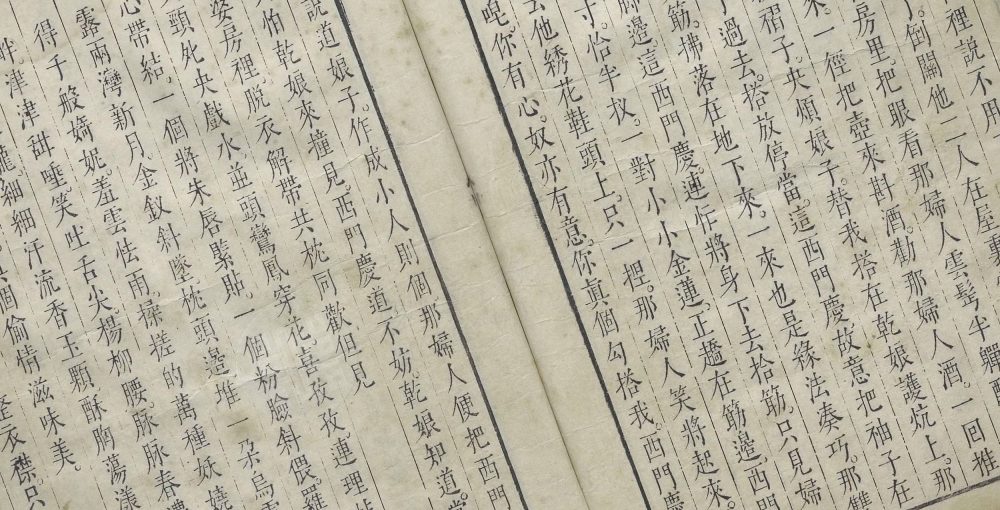 裡說不用
了倒關他二人在屋裏
房里把眼看那婦人雲髻半軃
來一徑把壺來斟酒勸那婦人酒一回推
褶子央煩娘子替我搭在乾娘護炕上那
過去搭放停當這西門慶故意把袖子在
筯拂落在地下來一來也是緣法奏巧那雙
邊這西門慶連忙將身下去拾筯只見婦
寸恰半扠一對小小金蓮正趫在筯邊西門
去他綉花鞋頭上只一捏那婦人笑將起來
你有心奴亦有意你真個勾搭我西門慶
說道娘子作成小人則個那婦人便把西門
怕乾娘來撞見西門慶道不妨乾娘知道
婆房裡脫衣解帶共枕同歡但見
頸死央戲水並頭鸞鳳穿花喜孜孜連理
心帶結一個將朱唇緊貼一個粉臉斜偎羅
露兩彎新月金釵斜墜枕頭邊堆一朶烏
得千般嬌妮羞雲怯雨揉搓的萬種妖嬈
津津甜唾笑吐舌尖楊柳腰脉脉春濃
細細汗流香玉顆酥胸蕩漾
個偷情滋味美
衣襟只